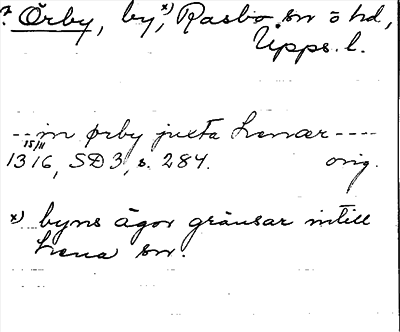 ? Örby, by, x) Rasbo sn o hd,
Upps. l.
--- in ørby juxta Lenær ----
15/11
1316, SD 3, s. 284. orig.
x) byns ägor gränsar intill
Lena sn.